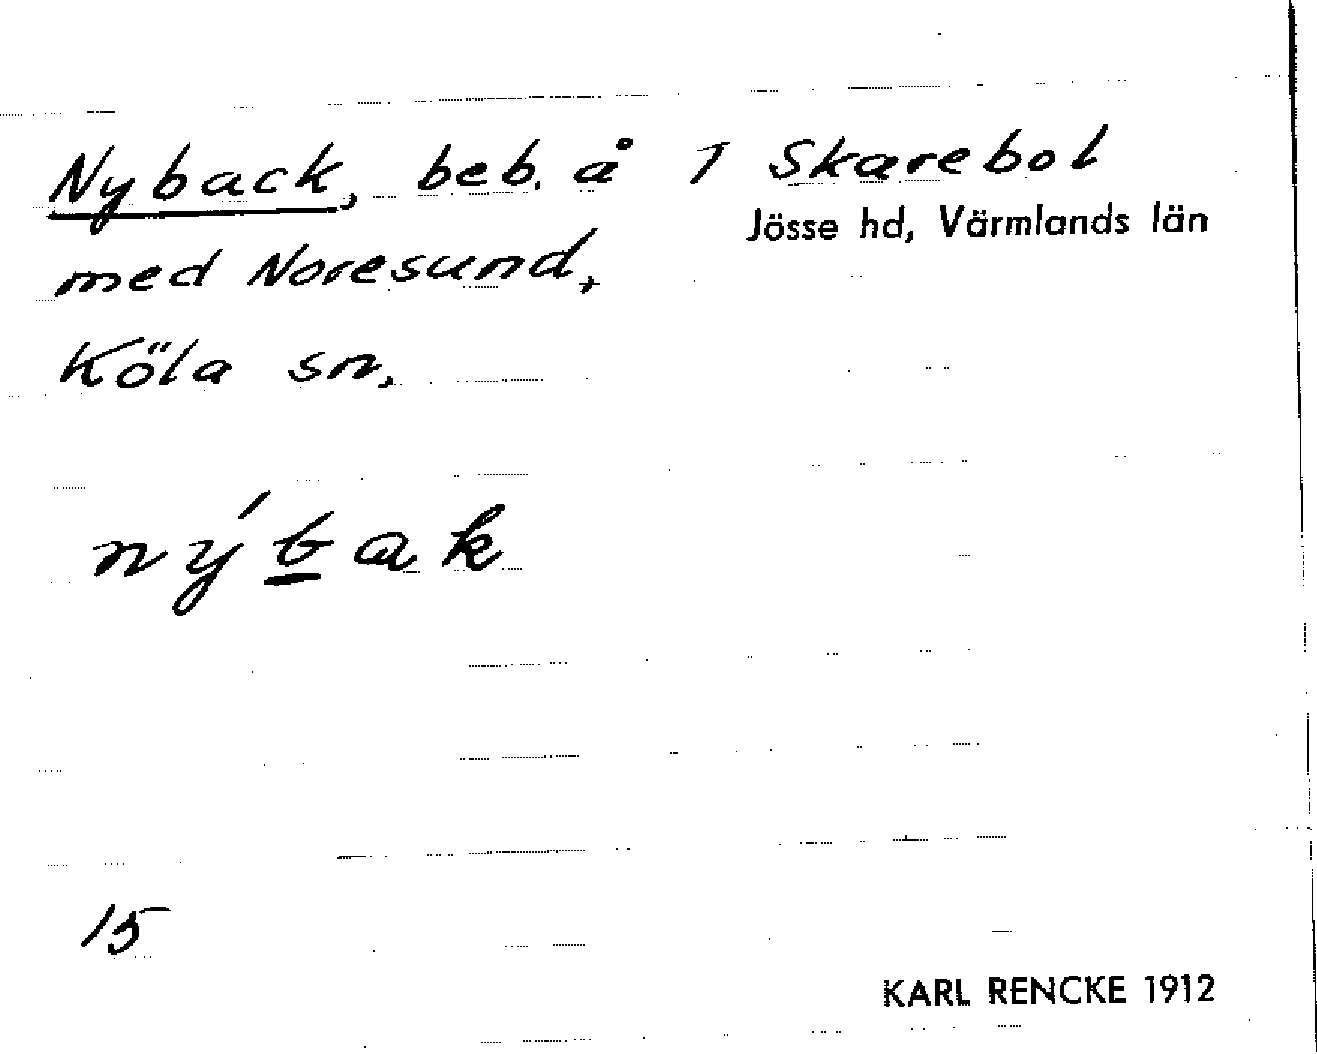 Nyback, beb. å 1 Skarebol
Jösse hd, Värmlands län
med Noresund,
Köla sn.
nýbak
15
KARL RENCKE 1912